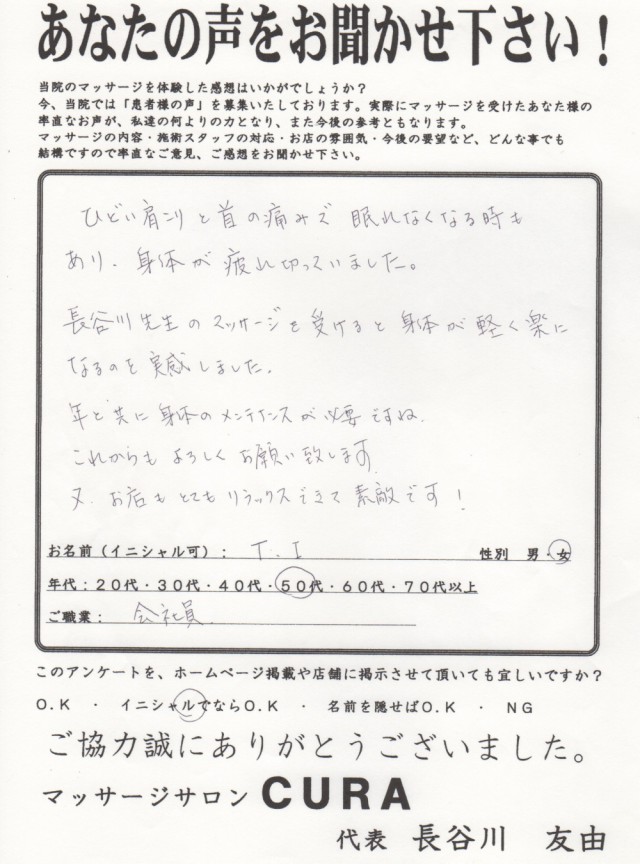 あなたの声をお聞かせ下さい！
当院のマッサージを体験した感想はいかがでしょうか？
今、当院では「患者様の声」を募集いたしております。実際にマッサージを受けたあなた様の
率直なお声が、私達の何よりの力となり、また今後の参考ともなります。
マッサージの内容・施術スタッフの対応・お店の雰囲気・今後の要望など、どんな事でも
結構ですので率直なご意見、ご感想をお聞かせ下さい。
ひどい肩こりと首の痛みで 眠れなくなる時も
あり、身体が疲れ切っていました。
長谷川先生のマッサージを受けると身体が軽く楽に
なるのを実感しました。
年と共に身体のメンテナンスが必要ですね。
これからもよろしくお願い致します
又、お店もとてもリラックスできて素敵です！
お名前（イニシャル可）： T.I 性別 男・女
年代：２０代・３０代・４０代・５０代・６０代・７０代以上
ご職業： 会社員
このアンケートを、ホームページ掲載や店舗に掲示させて頂いても宜しいですか？
O.K ・ イニシャルでならO.K ・ 名前を隠せばO.K ・ NG
ご協力誠にありがとうございました。
マッサージサロン CURA
代表 長谷川 友由